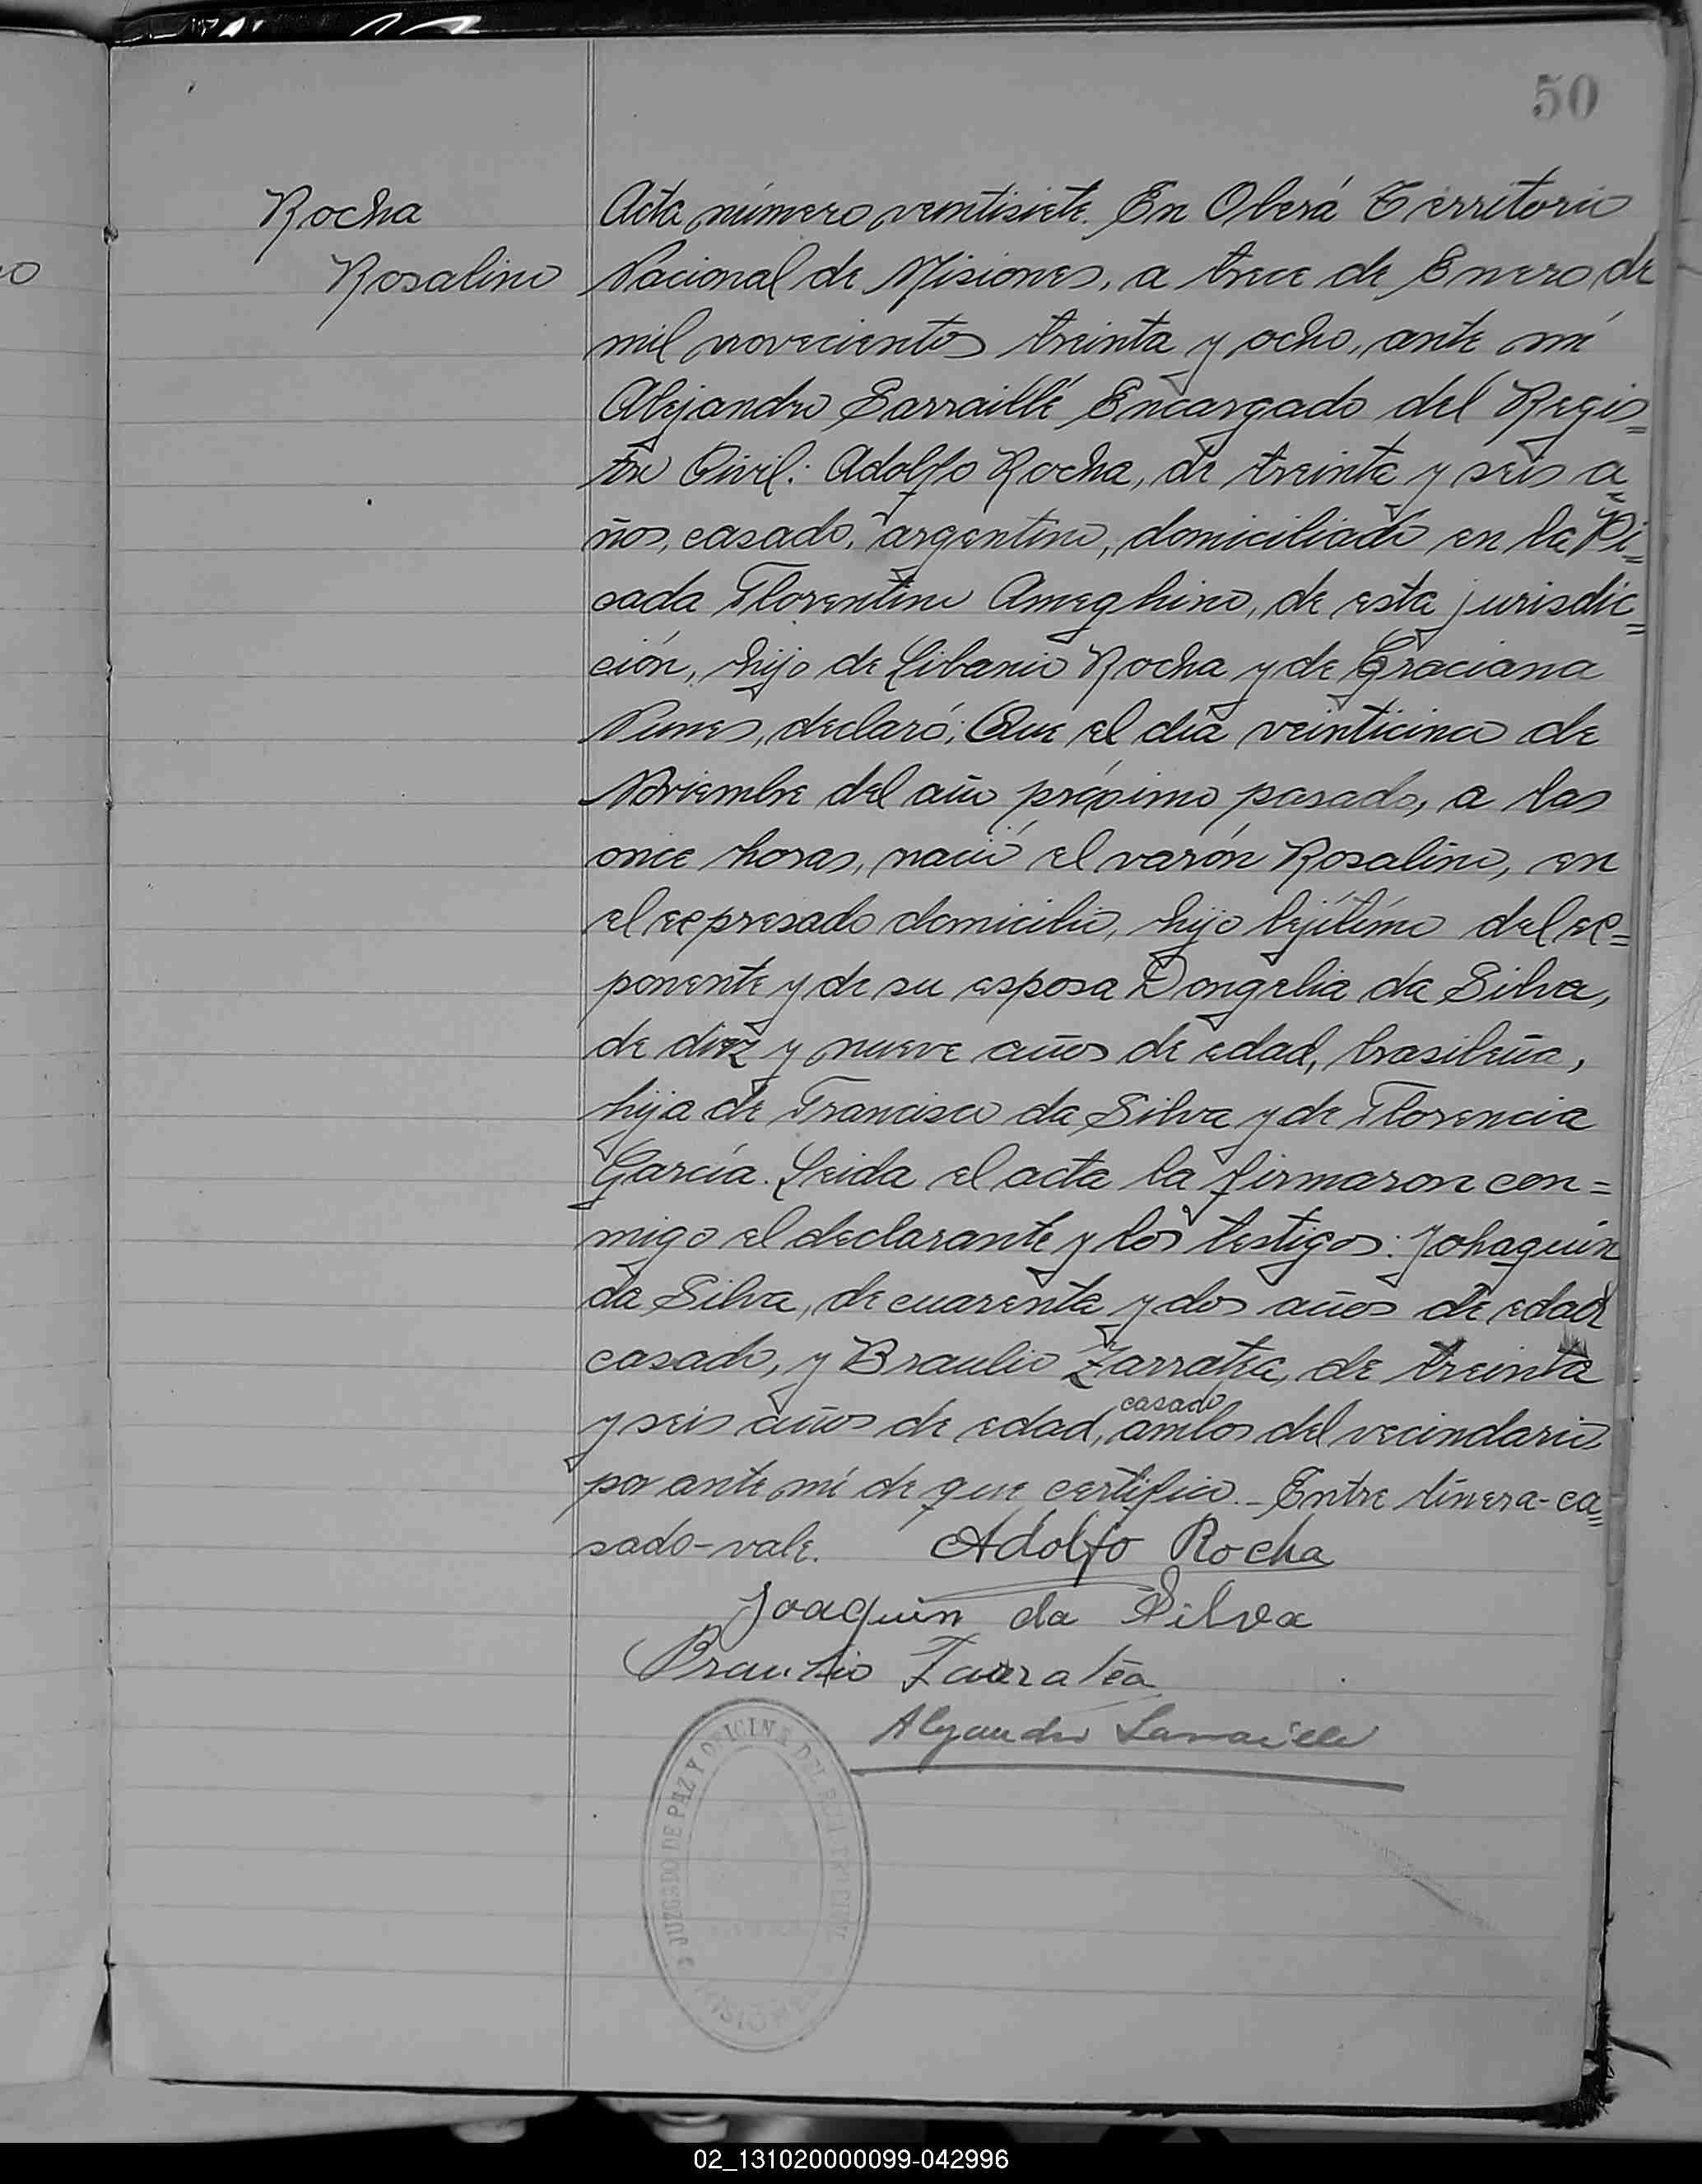 50
Rocha
Rosalino
Acta número ventisiete. En Oberá Territorio
Nacional de Misiones, a trece de Enero de
mil novecientos treinta y ocho, ante mí
Alejandro Larraillé Encargado del Regis=
tro Civil: Adolfo Rocha, de treinta y seis a=
ños, casado, argentino, domiciliado en la Pi=
cada Florentino Ameghino, de esta jurisdic=
ción, hijo de Libanio Rocha y de Graciana
Nunes, declaró: Que el día veinticinco de
Noviembre del año próximo pasado, a las
once horas, nació el varón Rosalino, en
el expresado domicilio, hijo lejítimo del ex=
ponente y de su esposa Dongelia da Silva,
de diez y nueve años de edad, brasileña,
hija de Francisco da Silva y de Florencia
García. Leida el acta la firmaron con=
migo el declarante y los testigos: Johaquín
da Silva, de cuarenta y dos años de edad
casado, y Braulio Zarratea, de treinta
casado
y seis años de edad, ambos del vecindario
por ante mí de que certifico.- Entre línera-ca=
sado-vale. Adolfo Rocha
Joaquin da Silva
Braulio Zarratéa
Alejandro Larraillé
JUZGADO DE PAZ Y OFICINA DEL REGISTRO CIVIL
MISIONES
02_131020000099-042996